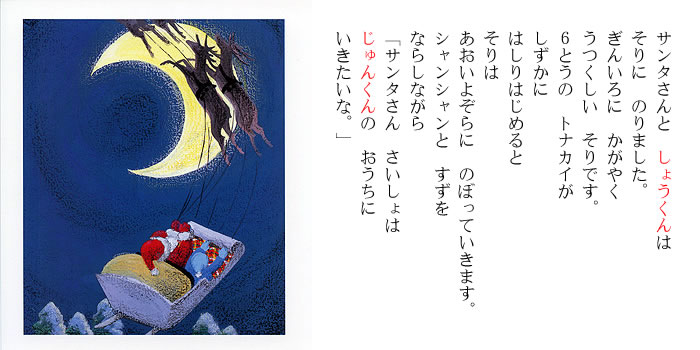 サンタさんと　しょうくんは
そりに　のりました。
ぎんいろに　かがやく
うつくしい　そりです。
６とうの　トナカイが
しずかに
はしりはじめると
そりは
あおいよぞらに　のぼっていきます。
シャンシャンと　すずを
ならしながら
「サンタさん　さいしょは
じゅんくんの　おうちに
いきたいな。」